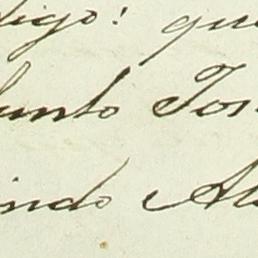 digo: que
funto Jos
indo Al